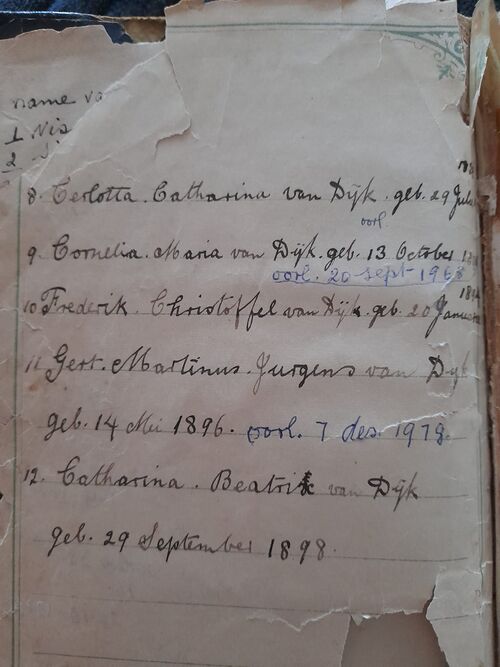 name va
1 Nis
2
8. Cerlotta. Catharina van Dijk. geb. 29 Julie
oorl.
9. Cornelia. Maria van Dijk. geb. 13 October
oorl. 20 sept 1968
10 Frederik. Christoffel van Dijk. geb. 20 Januarie
11 Gert. Martinus. Jurgens van Dijk
geb. 14 Mei 1896. oorl. 7 des. 1979.
12. Catharina. Beatrix van Dijk
geb. 29 September 1898.